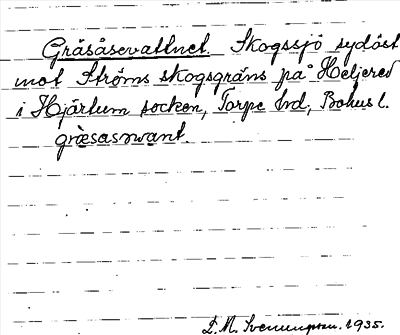 Gräsåsevattnet. Skogssjö sydöst
mot Ströms skogsgräns på Heljered
i Hjärtum socken, Torpe hd, Bohusl.
græsasᵊvant.
L. M. Svenungsson. 1935.